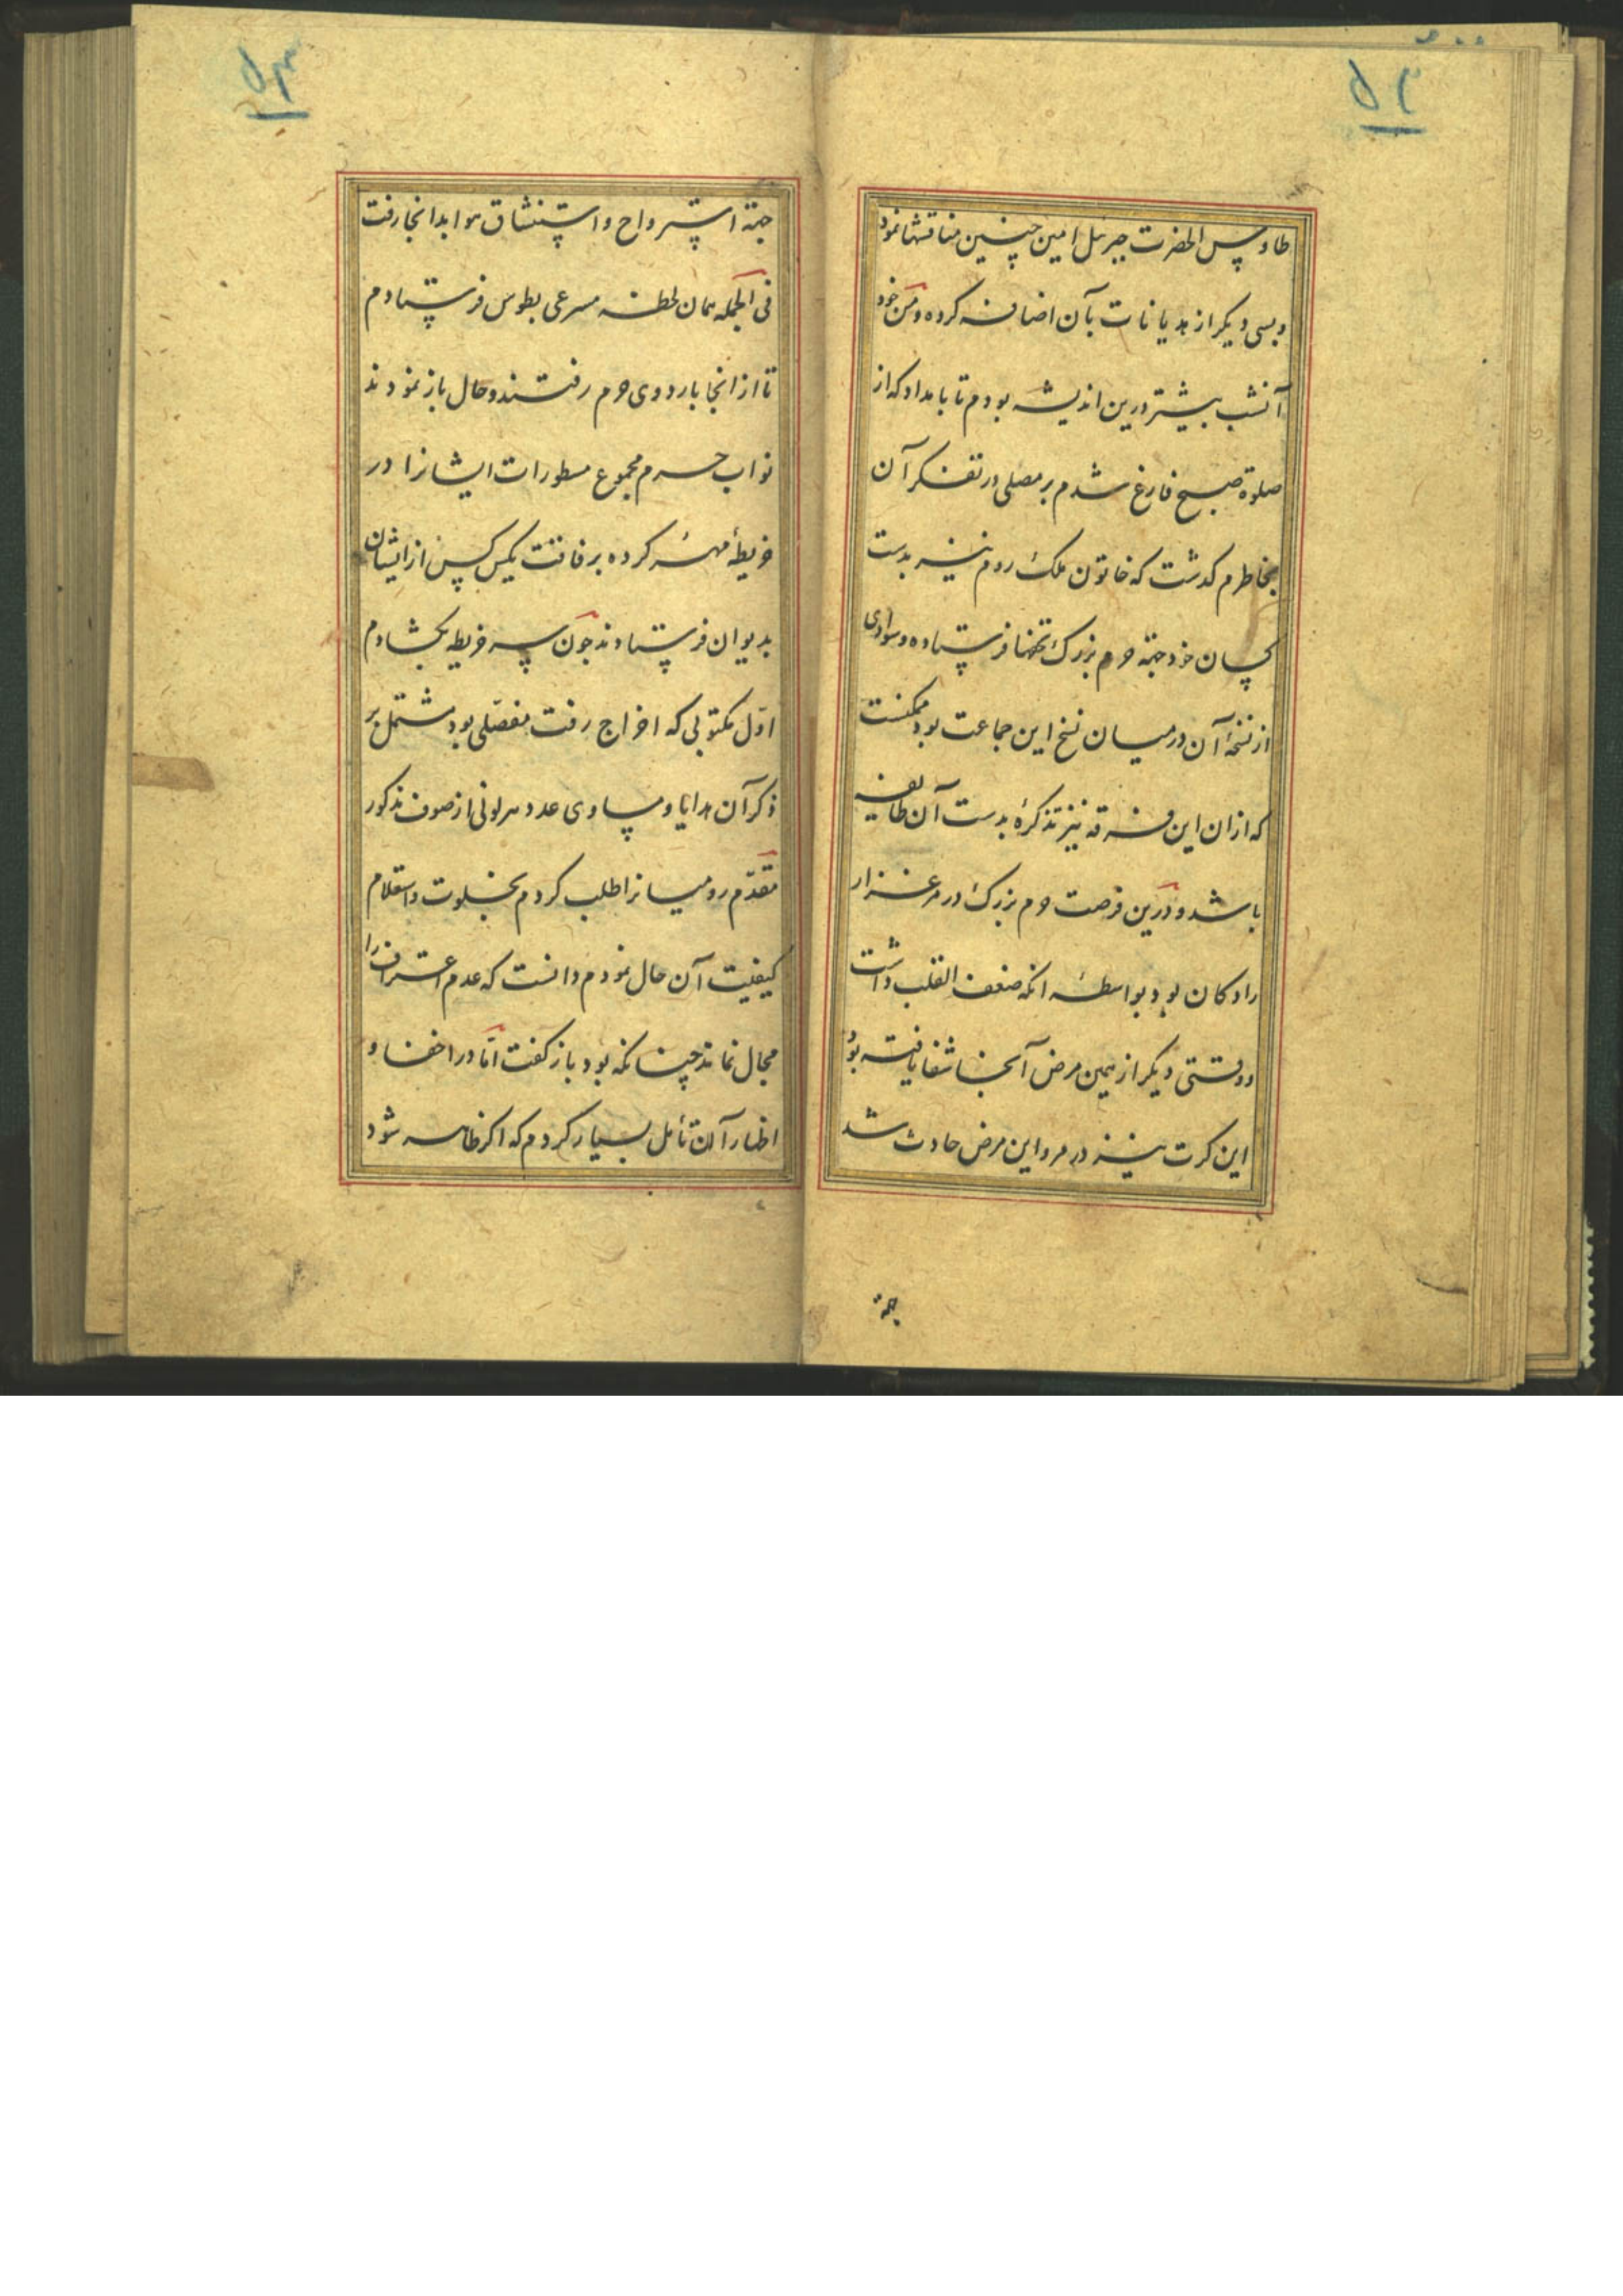 ۵۲
طاوس الحضرت جبرئیل امین چنین مناقشها نمود
و بسی دیکر از هدیانات بآن اضافه کرده و من خود
آنشب بیشتر درین اندیشه بودم تا بامداد که از
صلوة صبح فارغ شدم بر مصلی در تفکر آن
بخاطرم کدشت که خاتون ملک روم نیز بدست
کسان خود جهة حرم بزرک تحفها فرستاده و سوادی
از نسخهٔ آن در میان نسخ این جماعت بود ممکنست
که ازان این فرقه نیز تذکرهٔ بدست آن طایفه
باشد و درین فرصت حرم بزرک در مرغزار
رادکان بود بواسطه انکه ضعف القلب داشت
و وقتی دیکر از همین مرض آنجا شفا یافته بود
این کرت نیز در مرو این مرض حادث شد
جهة
۵۳
جهة استرواح و استنشاق هوا بدانجا رفت
فی الجمله همان لحظه مسرعی بطوس فرستادم
تا از انجا باردوی حرم رفتند و حال باز نمودند
نواب حرم مجموع مسطورات ایشانرا در
خریطهٔ مهر کرده برفاقت یکس کس از ایشان
بدیوان فرستادند چون سر خریطه بکشادم
اوّل مکتوبی که اخراج رفت مفصّلی بود مشتمل بر
ذکر آن هدایا و مساوی عدد هر لونی از صوف مذکور
مقدّم رومیانرا طلب کردم بخلوت و استعلام
کیفیت آن حال نمودم دانست که عدم اعتراف را
مجال نماند چنانکه بود باز کفت امّا در اخفا و
اظهار آن تأمل بسیار کردم که اکر ظاهر شود